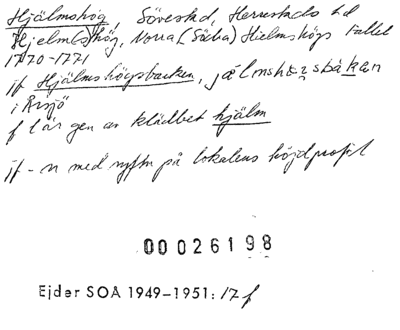 Hjälmshög, Sövestad, Herrestads hd
Hjelm(s)hög, Norra (Södra) Hielmshögs Fallet
1770-1771
jf Hjälmshögsbacken, jälmshøzsbakan
i Årsjö
f l är gen av klädbet hjälm
jf - n med syftn på lokalens höjdprofil
00026198
Ejder SOA 1949–1951: 17 f